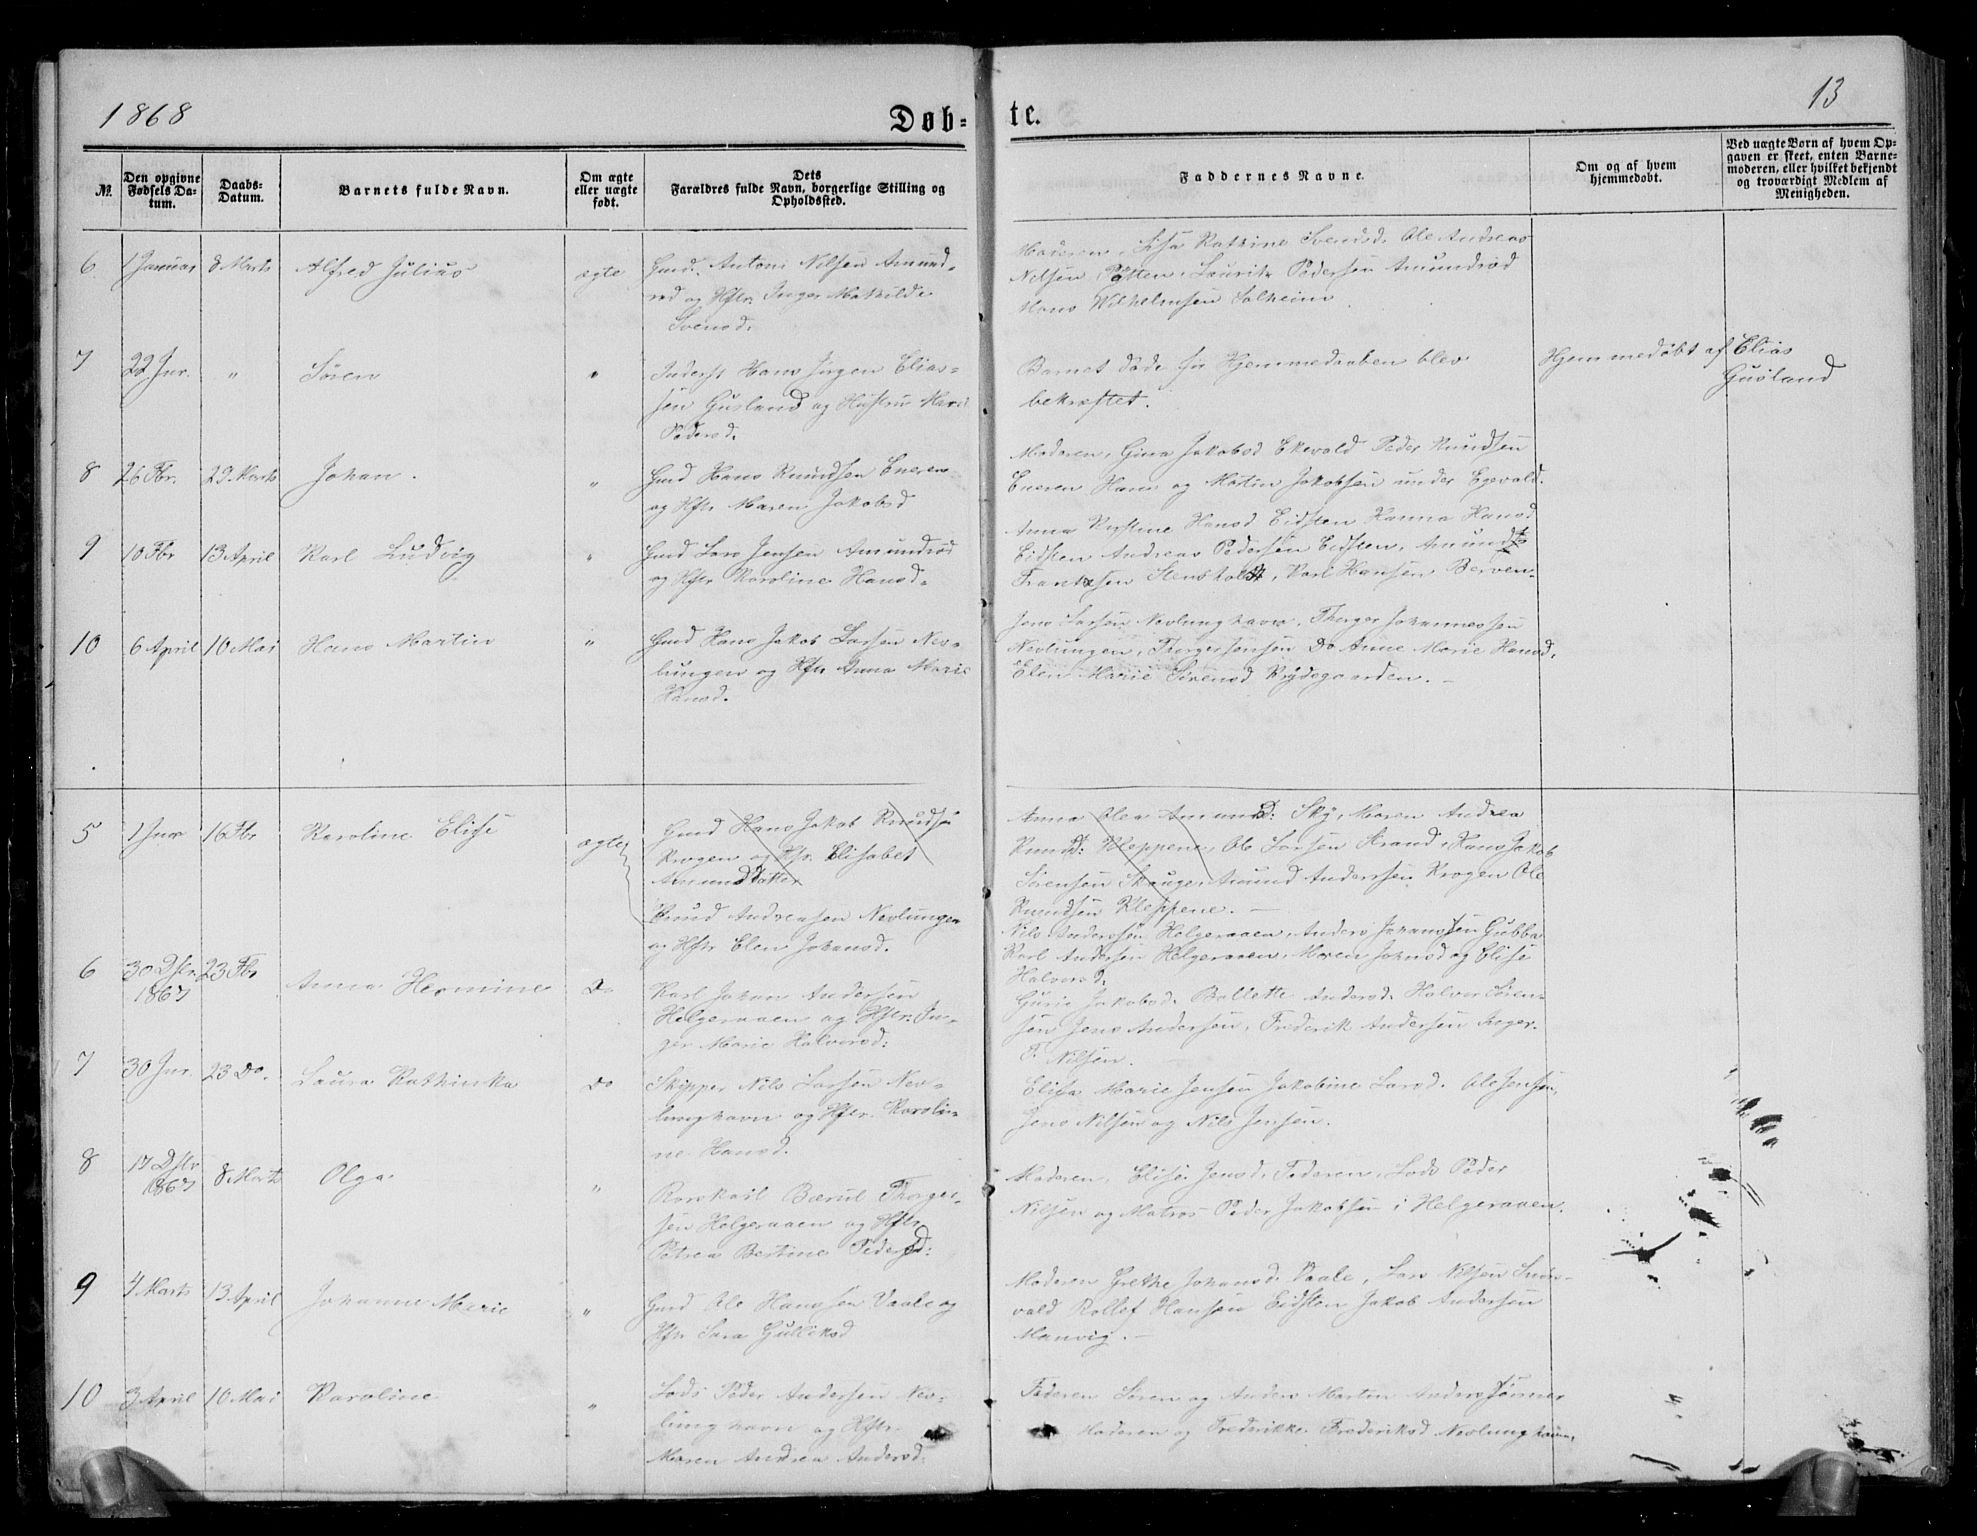 1868
Døb-
te.
13
№
Den opgivne Fødsels Datum.
Daabs-Datum.
Barnets fulde Navn.
Om ægte eller uægte født.
Dets Forældres fulde Navn, borgerlige Stilling og Opholdssted.
Faddernes Navne.
Om og af hvem hjemmedøbt.
Ved uægte Børn af hvem Opgaven er skeet, enten Barnemoderen, eller hvilket bekjendt og troværdigt Medlem af Menigheden.
6 1 Januar 8 Marts Alfred Julius ægte
Gmd. Antoni Nilsen Amund-
rød og Hstr. Inger Mathilde
Svensd.
Moderen, Lisa Kathine Svensd. Ole Andreas
Nilsen Pøtten, Lauritz Pedersen Amundrød
Hans Wilhelmsen Solheim
7 22 Jnr. " Søren "
Inderst Hans Jørgen Elias-
sen Gusland og Hustru Maren
Pedersd.
Barnet døde før Hjemmedaaben blev
bekræftet.
Hjemmedøbt af Elias
Gusland
8 26 Fbr. 29 Marts Johan. "
Gmd Hans Knudsen Eneren
og Hstr Maren Jakobsd
Moderen, Gina Jakobsd Ekevald Peder Knudsen
Eneren Hans og Martin Jakobsen under Egevald.
9 10 Fbr 13 April Karl Ludvig "
Gmd Lars Jensen Amundrød
og Hstr Karoline Hansd.
Anna Kirstine Hansd Eidsten Hanna Hansd
Eidsten Andreas Pedersen Eidsten, Amund
Frantzen Stensholt, Karl Hansen Berven.
10 6 April 10 Mai Hans Martin "
Gmd Hans Jakob Larsen Nev-
lungen og Hstr Anna Marie
Hansd.
Jens Larsen Nevlunghavn, Thorger Johannessen
Nevlungen, Thorger Jensen Do Anne Marie Hansd,
Elen Marie Sørensd Brydegaarden. -
5 1 Jnr 16 Fbr Karoline Elise ægte
Gmd Hans Jakob Knudsen
Krogen og Hstr. Elisabet
Amundsdatter
Knud Andreasen Nevlungen
og Hstr Elen Johansd.
Anna Olea Amundsd: Sky, Maren Andrea
Knudsd: Kleppene, Ole Larsen Strand, Hans Jakob
Sørensen Skouge, Amund Anderssen Krogen Ole
Knudsen Kleppene. -
Nils Anderssen Helgeraaen, Anders Johannssen Gubba
Karl Andersen Helgeraaen, Maren Johnsd og Elise
Halvorsd.
6 30 Dsbr. 1867 23 Fbr Anna Hermine Do
Karl Johan Andersen
Helgeraaen og Hstr. In-
ger Marie Halvorsd:
Gurie Jakobsd. Bollette Andersd. Halvor Søren-
sen Jens Andersen, Frederik Andersen Inger.
T. Nilsen.
7 30 Jnr. 23 Do. Laura Kathinka Do
Skipper Nils Larsen Nev-
lunghavn og Hstr. Karoli-
ne Hansd.
Elisa Marie Jensen Jakobine Larsd. Ole Jensen,
Jens Nilsen og Nils Jensen.
8 17 Dsbr 1867 8 Marts Olga "
Karskarl Bærul Thorger-
sen Helgeraaen og Hstr
Petrea Bertine Pedersd:
Moderen, Elise Jensd, Faderen, Lods Peder
Nilsen og Matros Peder Jakobsen i Helgeraaen.
9 4 Marts 13 April Johanne Marie "
Gmd Ole Hanssen Vaale og
Hstr Sara Gulliksd
Moderen Grethe Johansd Vaale, Lars Nilsen Snør-
vald Rollef Hansen Eidsten Jakob Andersen
Manvig. -
10 3 April 10 Mai Karoline "
Lods Peder Andersen Nev-
lunghavn og Hstr.
Maren Andrea Andersd.
Faderen Søren og Anders Martin Anders Sønner
Moderen og Frederikke Frederiksd Nevlunghavn.